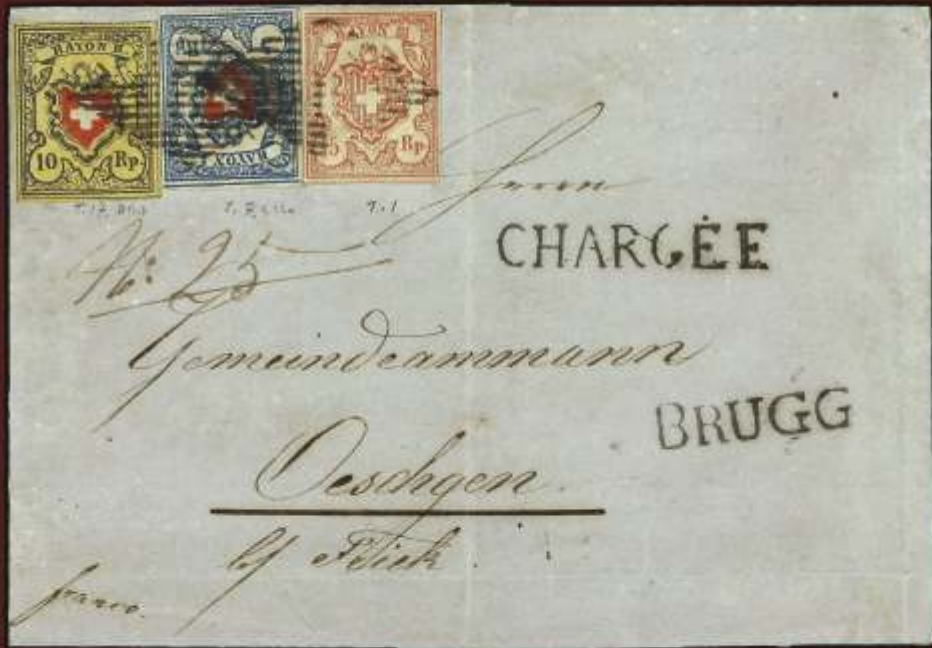 RAYON II
10 Rp.
RAYON
Rp.
T. 1
Herrn
CHARGÉE
No: 25
Gemeindeammann
BRUGG
Oeschgen
b/ Frick
franco.